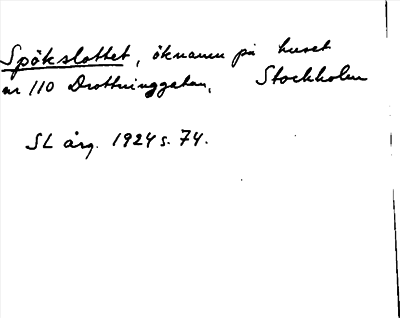 Spökslottet, öknamn på huset
nr 110 Drottninggatan, Stockholm
SL årg. 1924 s. 74.